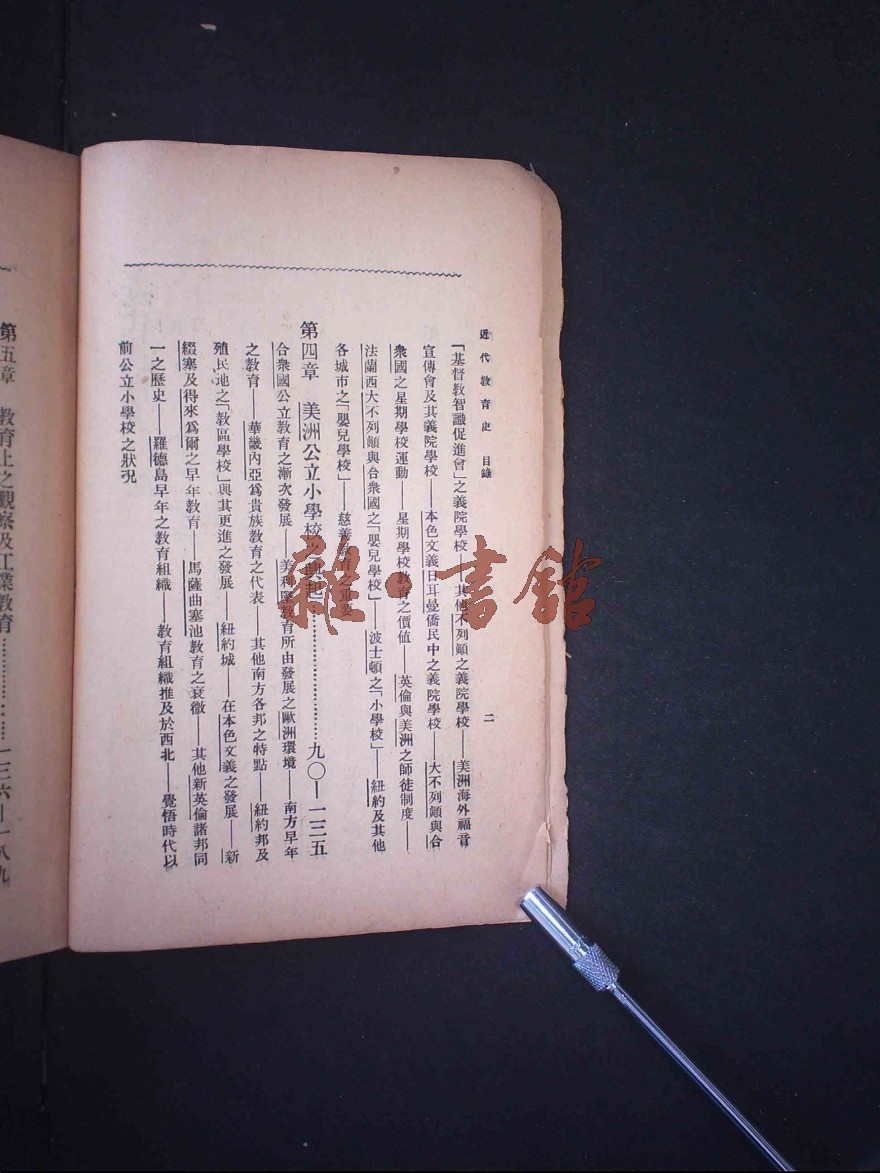 近代教育史　目錄
二
「基督教智識促進會」之義院學校——其他不列顛之義院學校——美洲海外福音
宣傳會及其義院學校——本色文義日耳曼僑民中之義院學校——大不列顛與合
衆國之星期學校運動——星期學校教育之價值——英倫與美洲之師徒制度——
法蘭西大不列顛與合衆國之「嬰兒學校」——波士頓之「小學校」——紐約及其他
各城市之「嬰兒學校」——慈善教育之重要
第四章　美洲公立小學校之興起……………………九〇—一三五
合衆國公立教育之漸次發展——美利堅教育所由發展之歐洲環境——南方早年
之教育——華畿內亞爲貴族教育之代表——其他南方各邦之特點——紐約邦及
殖民地之「教區學校」與其更進之發展——紐約城——在本色文義之發展——新
綴塞及得來爲爾之早年教育——馬薩曲塞池教育之衰微——其他新英倫諸邦同
一之歷史——羅德島早年之教育組織——教育組織推及於西北——覺悟時代以
前公立小學校之狀況
第五章　教育上之觀察及工業教育……………………一三六—一八九
雜·書館